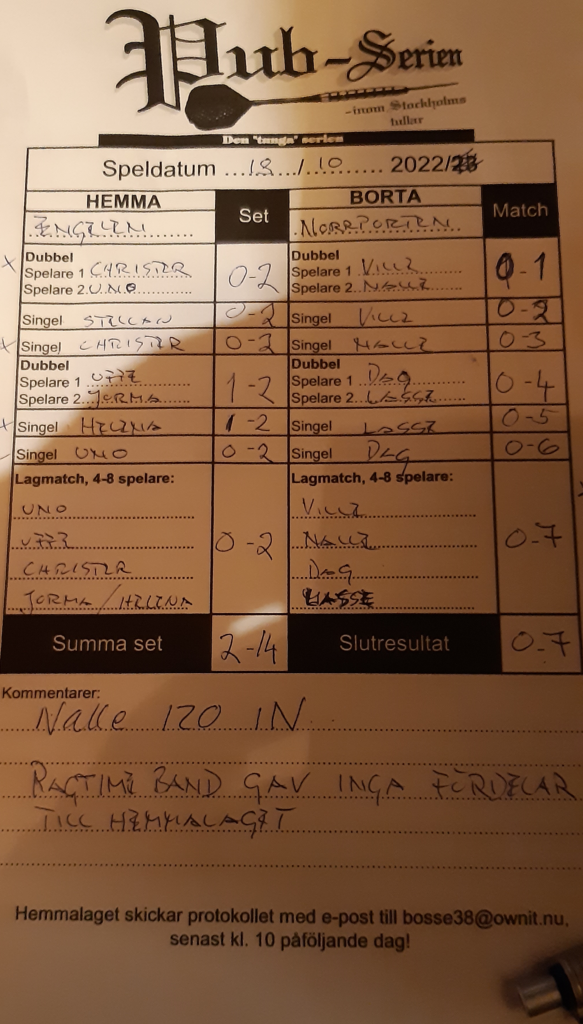 Pub-Serien
-inom Stockholms
tullar
Den "tunga" serien
Speldatum ...18.../...10...... 2022/23
HEMMA Set BORTA Match
ÄNGELEN NORRPORTEN
Dubbel Dubbel
Spelare 1 CHRISTER 0-2 Spelare 1 VILLE 0-1
Spelare 2 UNO Spelare 2 NALLE
Singel STELLAN 0-2 Singel VILLE 0-2
Singel CHRISTER 0-2 Singel NALLE 0-3
Dubbel Dubbel
Spelare 1 UFFE 1-2 Spelare 1 DAG 0-4
Spelare 2 JORMA Spelare 2 LASSE
Singel HELENA 1-2 Singel LASSE 0-5
Singel UNO 0-2 Singel DAG 0-6
Lagmatch, 4-8 spelare: Lagmatch, 4-8 spelare:
UNO VILLE
UFFE 0-2 NALLE 0-7
CHRISTER DAG
JORMA/HELENA LASSE
Summa set 2-14 Slutresultat 0-7
Kommentarer:
Nalle 120 IN
RAGTIME BAND GAV INGA FÖRDELAR
TILL HEMMALAGET
Hemmalaget skickar protokollet med e-post till bosse38@ownit.nu,
senast kl. 10 påföljande dag!